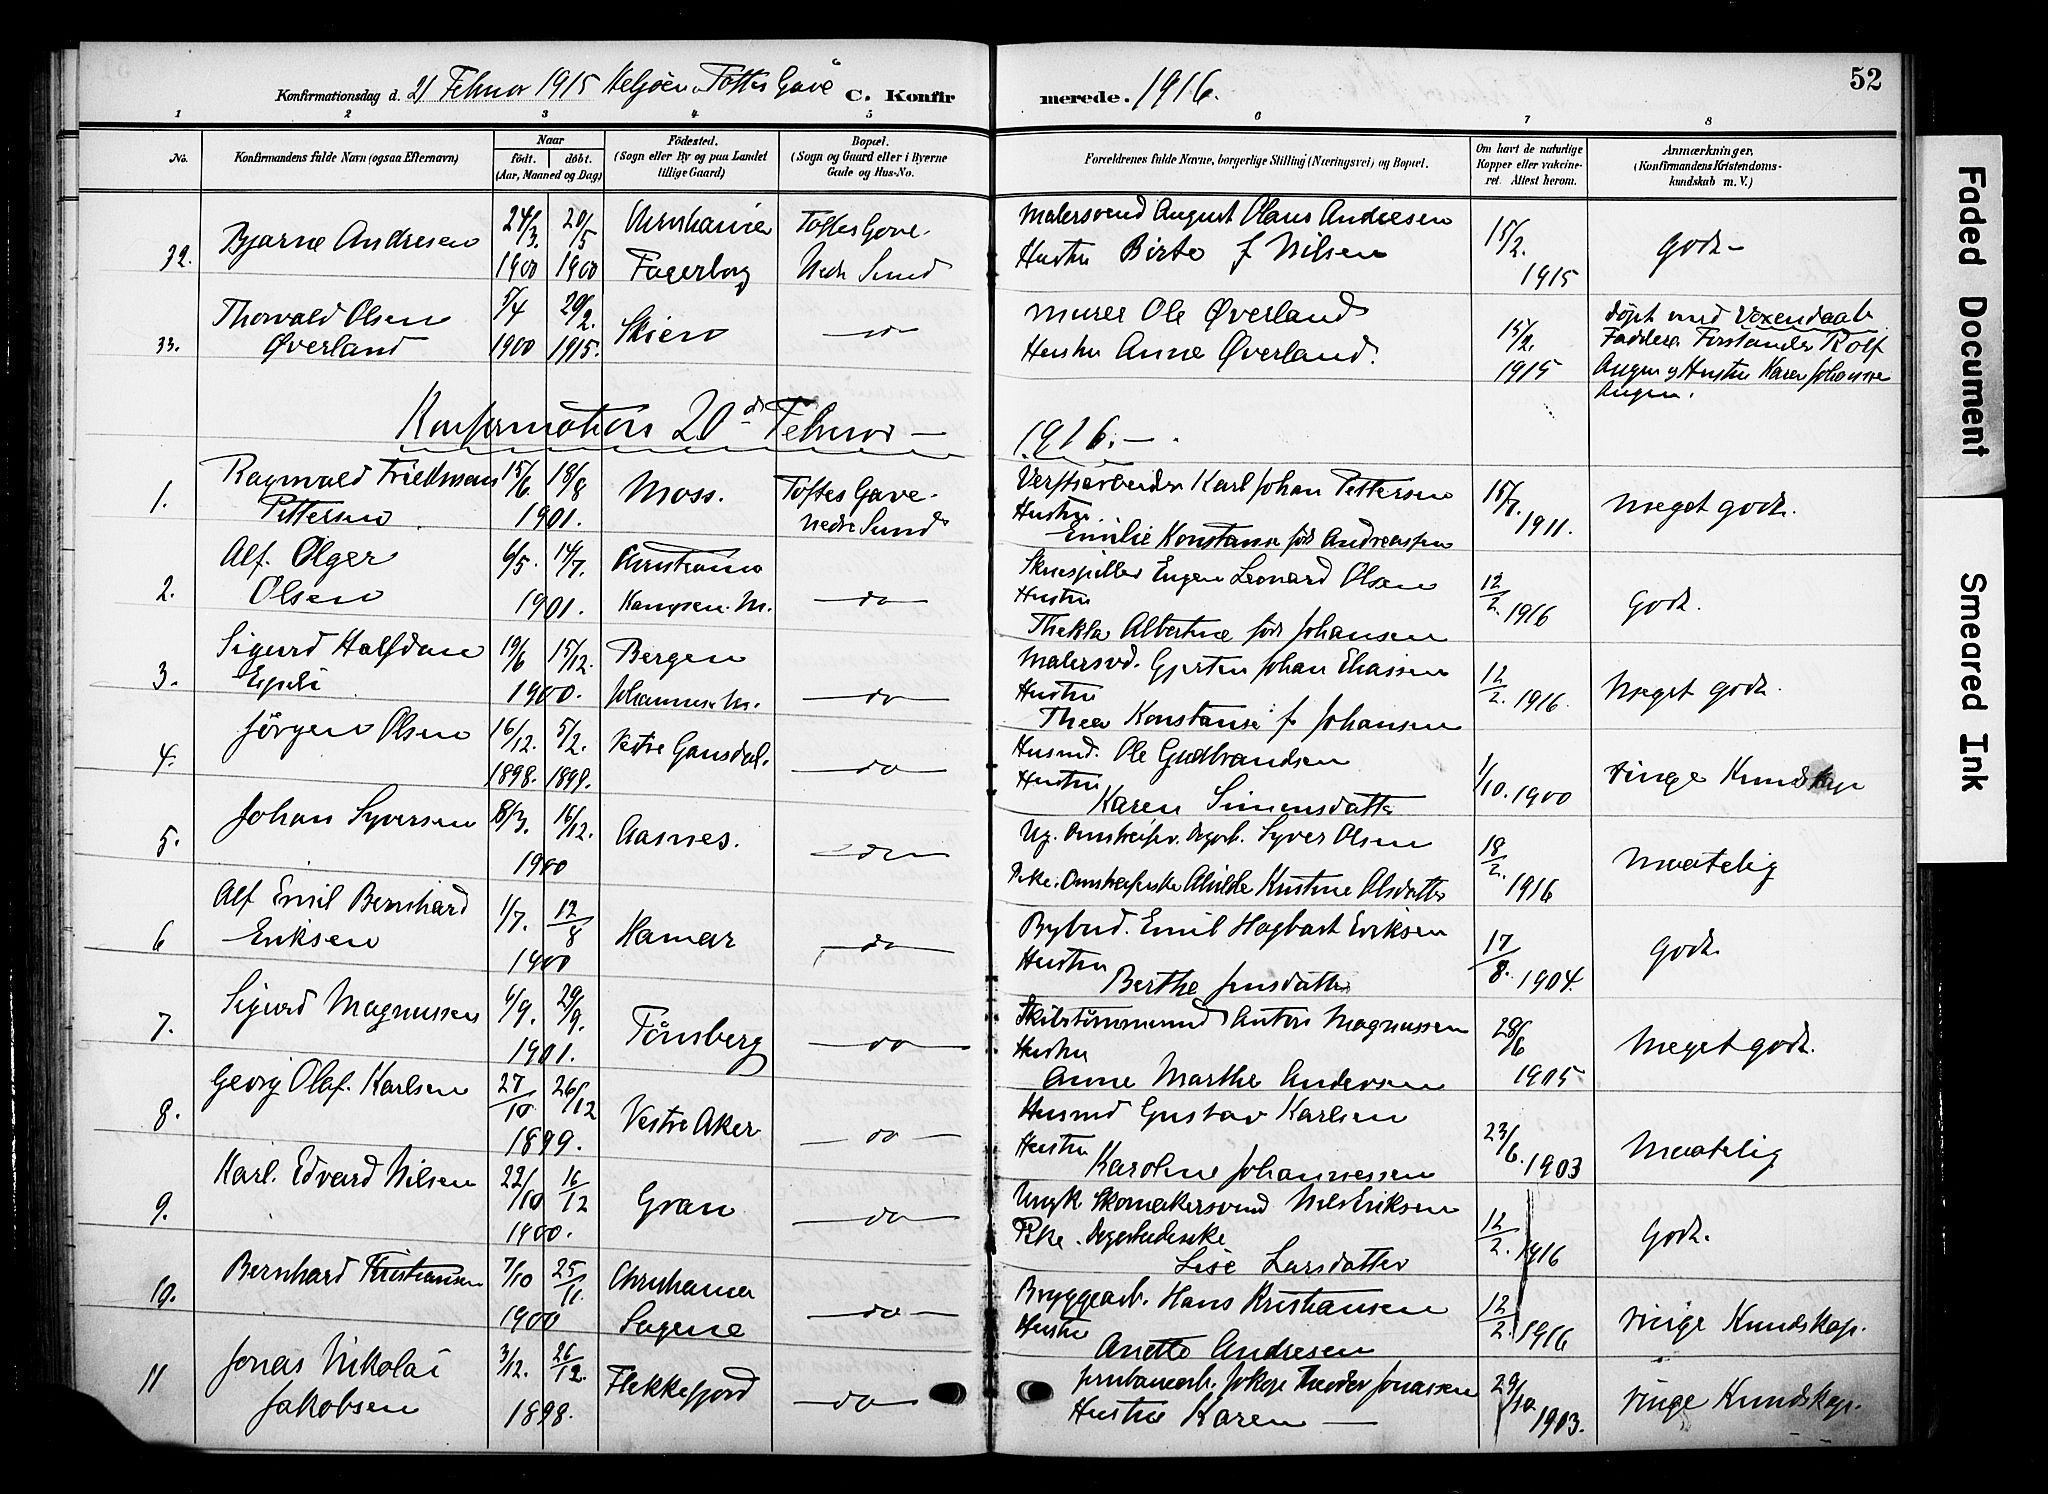 52
Konfirmationsdag d. 21 Februar 1915 Helgöen Toftes Gave C. Konfirmerede. 1916.
1 2 3 4 5 6 7 8
No. Konfirmandens fulde Navn (ogsaa Efternavn) Naar födt. döbt. (Aar, Maaned og Dag) Födested. (Sogn eller By og paa Landet tillige Gaard) Bopæl. (Sogn og Gaard eller i Byerne Gade og Hus-No. Forældrenes fulde Navne, borgerlige Stilling (Næringsvei) og Bopæl. Om havt de naturlige Kopper eller vakcineret. Attest herom. Anmærkninger, (Konfirmandens Kristendomskundskab m. V.)
32. Bjarne Andresen 24/3. 1900 20/5 1900 Christiania Fagerborg Toftes Gave. Nedre Sund
Malersvend August Olaus Andresen
Hustru Birte f Nilsen
15/2. 1915 Godt
33. Thorvald Olsen Øverland 5/4 1900 20/2. 1915. Skien do
Murer Ole Øverland
Hustru Anne Øverland.
15/2. 1915
döpt med Voxendaab
Faddere Forstander Rolf
Augen og Hustru Karen Johanne
Augen.
Konfirmation 20de Februar 1916.
1. Ragnvald Fridtman Pettersen 15/6 18/8 1901. Moss. Toftes Gave. Nedre Sund
Verftsarbeider Karl Johan Pettersen
Hustru
Emilie Konstanse född Andreassen
15/7. 1911. Meget godt.
2. Alf. Olger Olsen 6/5. 14/7. 1901. Christiania Kampen. M. do
Skuespiller Eugen Leonard Olsen
Hustru
Thekla Albertine född Johansen
12/2. 1916 Godt.
3. Sigurd Halfdan 19/6 15/12. 1900. Bergen Johannes M. do
Malersvd. Gjerten Johan Eliassen
Hustru
Thea Konstanse f. Johansen
12/2. 1916. Meget godt.
4. Jörgen Olsen 16/12. 1898. 5/2. 1898. Vestre Gausdal. do
Husmd. Ole Gudbrandsen
Hustru
Karen Simensdatter
1/10. 1900 ringe Kundskap
5. Johan Syversen 8/3. 16/12. 1900 Aasnes. do
Syver Olsen
Kristine Olsdatter
18/2. 1916 Maatelig
6 Alf Emil Bernhard Eriksen 1/7. 12/8 1900 Hamar do
Bybud. Emil Hagbart Eriksen
Hustru
Berthe Jensdatter
17/8. 1904. Godt.
7. Sigurd Magnussen 6/9. 29/9. 1901. Tönsberg do
Skibstömmermd Anton Magnussen
Hustru
Anne Marthe Andersen
28/6 1905 Meget godt.
8. Georg Olaf. Karlsen 27/10 26/12 1899. Vestre Aker do
Husmd Gustav Karlsen
Hustru
Karoline Johannessen
23/6. 1903 Maatelig
9. Karl. Edvard Nilsen 22/10 16/12 1900. Gran do
Ungk. Skomakersvend Nils Eriksen
Pike.
Lise Larsdatter
12/2. 1916 Godt.
10. Bernhard Kristiansen 7/10 25/11. 1900 Christiania Sagene do
Bryggearb. Hans Kristiansen
Hustru
Anette Andresen
12/2. 1916 ringe Kundskap.
11 Jonas Nikolai Jakobsen 3/12. 26/12. 1898. Flekkefjord do
Jernbanearb. Theodor Jonassen
Hustru Karen
29/10. 1903. ringe Kundskap.
Faded Document
Smeared Ink